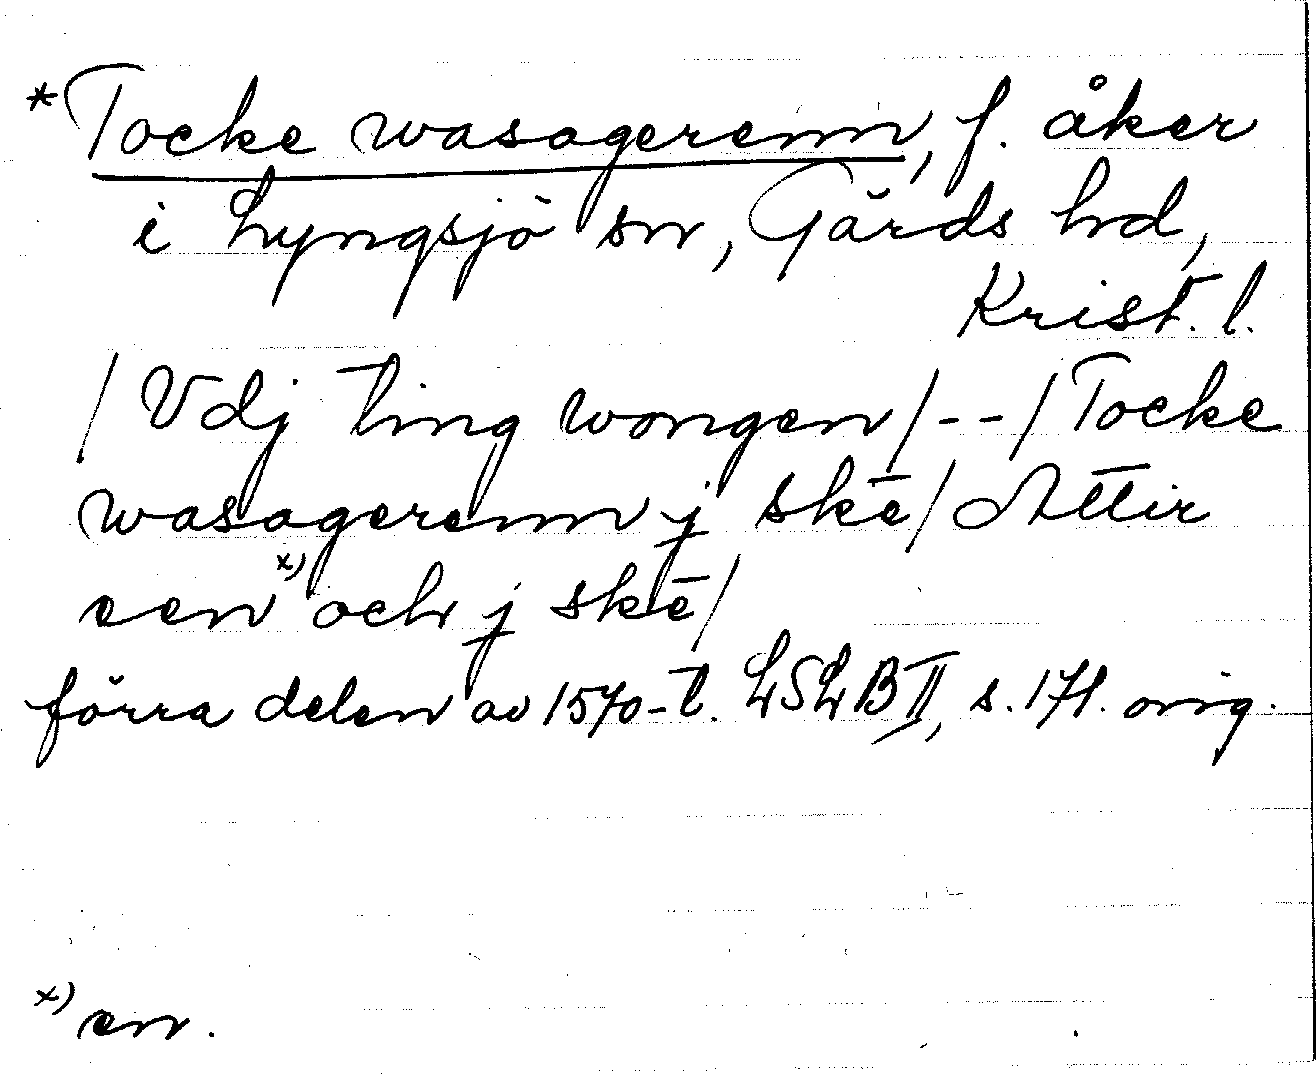 *Tocke wasagerenn, f. åker
i Lyngsjö sn, Gärds hd,
Krist. l.
/Vdj ting wongen/--/Tocke
wasagerenn j skē/Attir
een x) och j skē/
förra delen av 1570-t. LSLB II, s. 171. orig.
x) en.